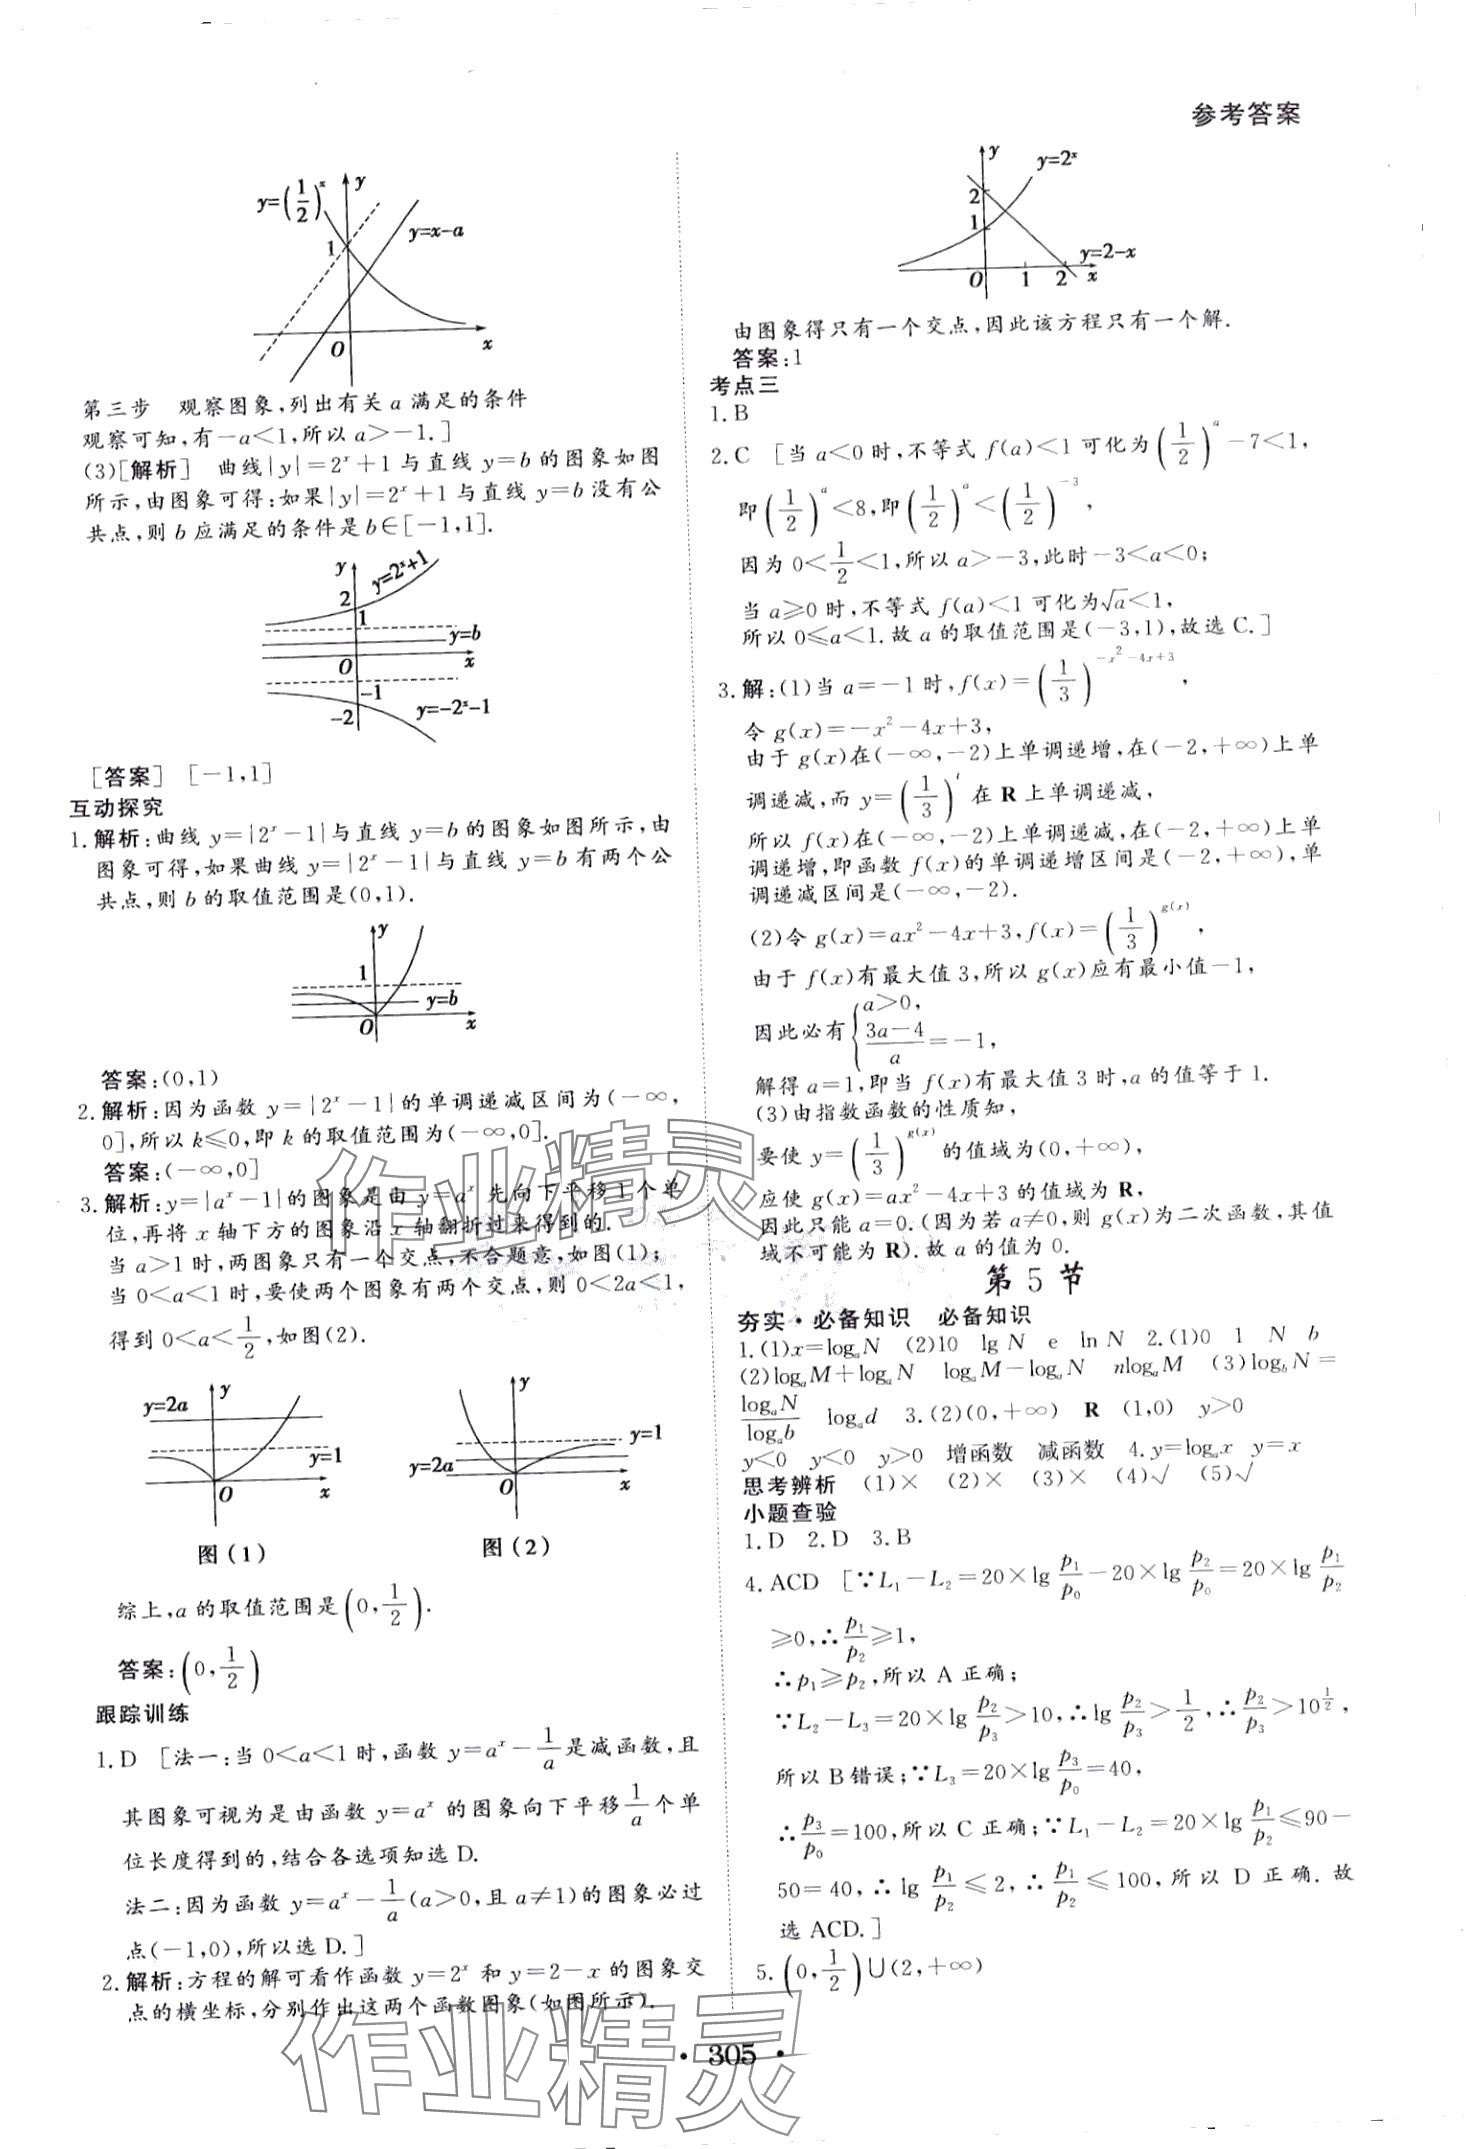 参考答案
y=(1/2)^x
y
y=x-a
1
O
x
第三步　观察图象,列出有关a满足的条件
观察可知,有-a<1,所以a>-1.]
(3)[解析]　曲线|y|=2^x+1与直线y=b的图象如图
所示,由图象可得:如果|y|=2^x+1与直线y=b没有公
共点,则b应满足的条件是b∈[-1,1].
y
y=2^x+1
2
1
y=b
O
x
-1
-2
y=-2^x-1
[答案]　[-1,1]
互动探究
1.解析:曲线y=|2^x-1|与直线y=b的图象如图所示,由
图象可得,如果曲线y=|2^x-1|与直线y=b有两个公
共点,则b的取值范围是(0,1).
y
1
y=b
O
x
答案:(0,1)
2.解析:因为函数y=|2^x-1|的单调递减区间为(-∞,
0],所以k≤0,即k的取值范围为(-∞,0].
答案:(-∞,0]
3.解析:y=|a^x-1|的图象是由y=a^x先向下平移1个单
位,再将x轴下方的图象沿x轴翻折过来得到的.
当a>1时,两图象只有一个交点,不合题意,如图(1);
当0<a<1时,要使两个图象有两个交点,则0<2a<1,
得到0<a<1/2,如图(2).
y
y=2a
y=1
O
x
图(1)
y
y=1
y=2a
O
x
图(2)
综上,a的取值范围是(0,1/2).
答案:(0,1/2)
跟踪训练
1.D　[法一:当0<a<1时,函数y=a^x-1/a是减函数,且
其图象可视为是由函数y=a^x的图象向下平移1/a个单
位长度得到的,结合各选项知选D.
法二:因为函数y=a^x-1/a(a>0,且a≠1)的图象必过
点(-1,0),所以选D.]
2.解析:方程的解可看作函数y=2^x和y=2-x的图象交
点的横坐标,分别作出这两个函数图象(如图所示).
y
y=2^x
2
1
y=2-x
O
1
2
x
由图象得只有一个交点,因此该方程只有一个解.
答案:1
考点三
1.B
2.C　[当a<0时,不等式f(a)<1可化为(1/2)^a-7<1,
即(1/2)^a<8,即(1/2)^a<(1/2)^-3,
因为0<1/2<1,所以a>-3,此时-3<a<0;
当a≥0时,不等式f(a)<1可化为√a<1,
所以0≤a<1.故a的取值范围是(-3,1),故选C.]
3.解:(1)当a=-1时,f(x)=(1/3)^(-x²-4x+3),
令g(x)=-x²-4x+3,
由于g(x)在(-∞,-2)上单调递增,在(-2,+∞)上单
调递减,而y=(1/3)^t在R上单调递减,
所以f(x)在(-∞,-2)上单调递减,在(-2,+∞)上单
调递增,即函数f(x)的单调递增区间是(-2,+∞),单
调递减区间是(-∞,-2).
(2)令g(x)=ax²-4x+3,f(x)=(1/3)^g(x),
由于f(x)有最大值3,所以g(x)应有最小值-1,
因此必有{a>0, (3a-4)/a=-1,
解得a=1,即当f(x)有最大值3时,a的值等于1.
(3)由指数函数的性质知,
要使y=(1/3)^g(x)的值域为(0,+∞),
应使g(x)=ax²-4x+3的值域为R,
因此只能a=0.(因为若a≠0,则g(x)为二次函数,其值
域不可能为R).故a的值为0.
第5节
夯实·必备知识　必备知识
1.(1)x=logₐN　(2)10　lg N　e　ln N　2.(1)0　1　N　b
(2)logₐM+logₐN　logₐM-logₐN　nlogₐM　(3)log_bN=
logₐN/logₐb　logₐd　3.(2)(0,+∞)　R　(1,0)　y>0
y<0　y<0　y>0　增函数　减函数　4.y=logₐx　y=x
思考辨析　(1)×　(2)×　(3)×　(4)√　(5)√
小题查验
1.D　2.D　3.B
4.ACD　[∵L₁-L₂=20×lg p₁/p₀-20×lg p₂/p₀=20×lg p₁/p₂
≥0,∴p₁/p₂≥1,
∴p₁≥p₂,所以A正确;
∵L₂-L₃=20×lg p₂/p₃>10,∴lg p₂/p₃>1/2,∴p₂/p₃>10^(1/2),
所以B错误;∵L₃=20×lg p₃/p₀=40,
∴p₃/p₀=100,所以C正确;∵L₁-L₂=20×lg p₁/p₂≤90-
50=40,∴lg p₁/p₂≤2,∴p₁/p₂≤100,所以D正确.故
选ACD.]
5.(0,1/2)∪(2,+∞)
·305·
作业精灵
作业精灵